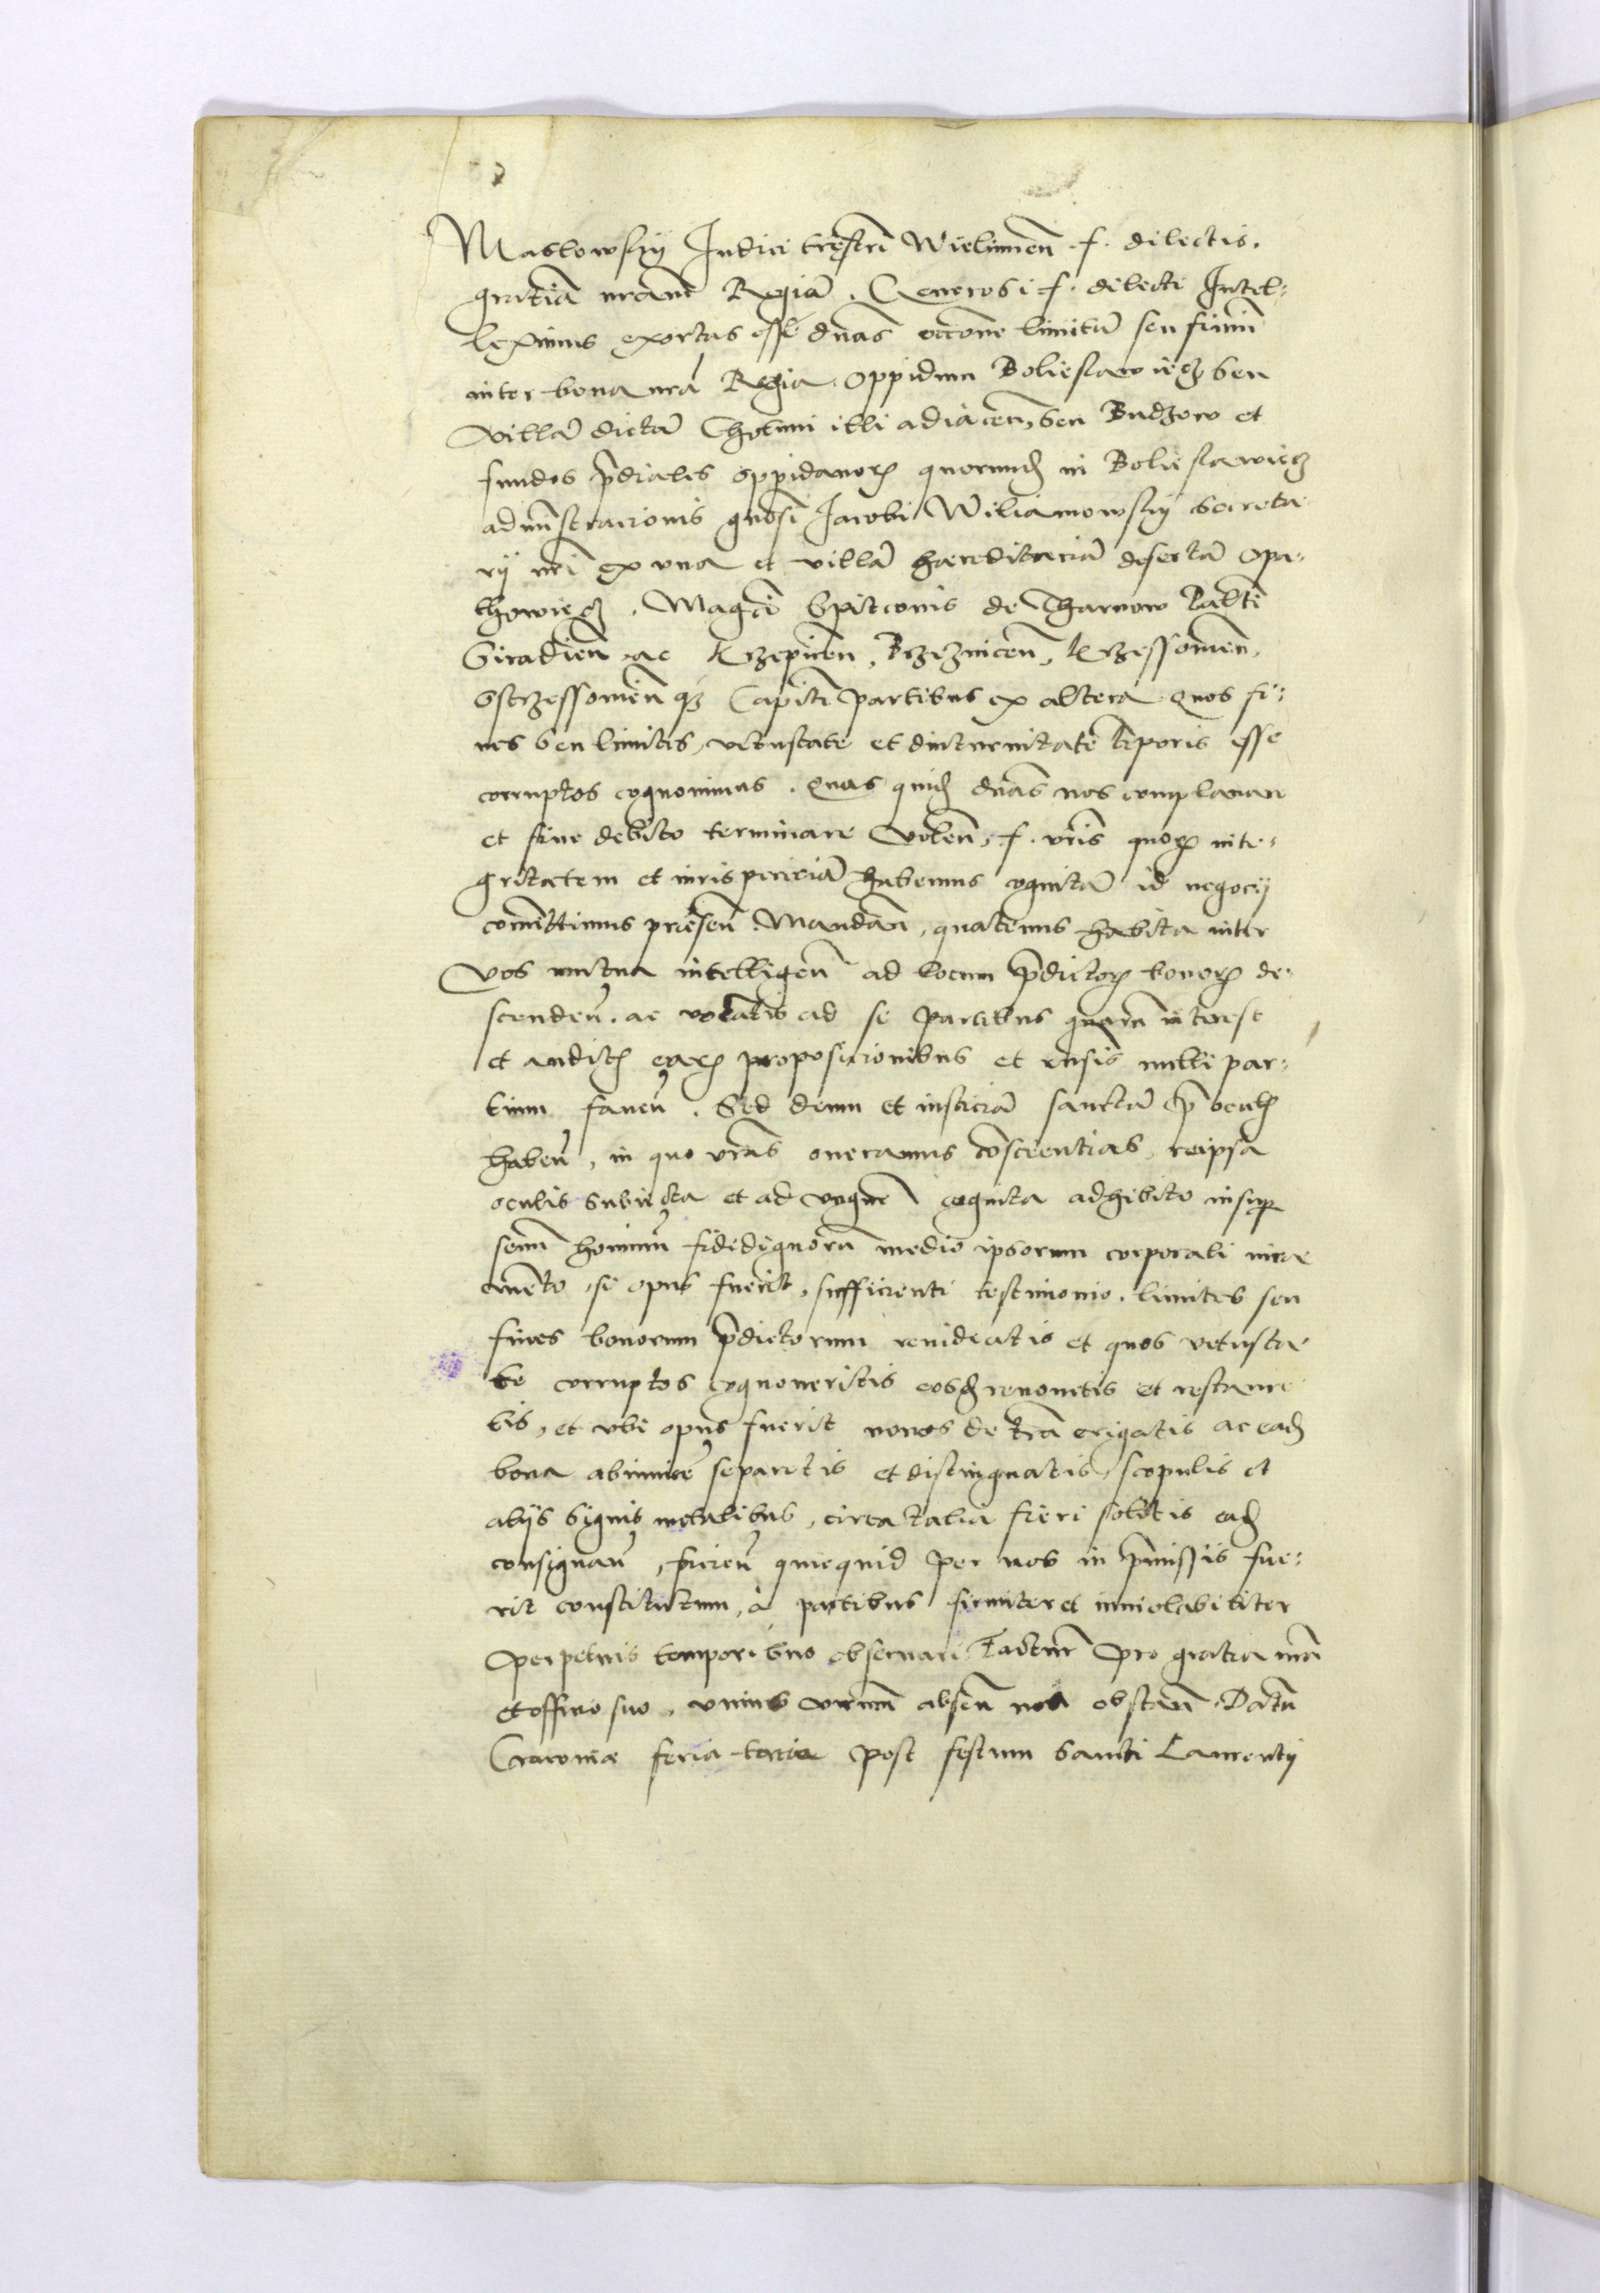 Maslowskij Judici trestri Wielunen̄. f. dilectis.
gratiā nrāmt̄ Regiā. Generosi f. dilecti Intel-
leximus exortas esse dr̄nas occōne limitū seu finiū
inter bona nrā Regia. oppidum Boliesławiecz seu
villā dictā Chotuni illi adiacen̄, seu Budzow et
fundos p̄diales oppidanor̄ quorund̄ in Boliesławiecz
administracionis gnōsi Jacobi Wiliamowskij Secreta
rij nr̄i ex vna et villā haereditariā desertā Opa-
thowiecz. Magc̄i Spitconis de Tharnow Palt̄i
Siradien̄. ac Krzepicen̄, Brzeznicen̄, Krzessowien̄,
Ostrzessowien̄ qz Capitī partibus ex altera. Quos fi-
nes seu limites, vetustate et diuturnitate tēporis esse
corruptos cognouimus. Quas quid̄ dr̄nās nos complanare
et fine debito terminare volen̄, f. vr̄is quor̄ inte-
gritatem et iuris periciā habemus cognitā id negocij
comittimus presen̄. Mandan̄, quatenus habita inter
vos mutua intelligen̄ ad locum p̄dictor̄ bonor̄ de-
scenden̄. ac vocatis ad se partibus quarū interest
et auditis ear̄ propositionibus et rn̄sis nulli par-
tium fauen̄. Sed deum et iusticiā sanctā p̄ oculis
haben̄, in quo vr̄as oneramus cōscientias, reipsa
oculis subiecta et ad vnguē cognita adhibito insup̄
senū hominū fidedignorū medio ipsorum corporali iura
mento, si opus fuerit, sufficienti testimonio. limites seu
fines bonorum p̄dictorum reuideatis et quos vetusta
te corruptos cognoueritis eosd̄ renouetis et restaure
tis, et vbi opus fuerit nouos de trā erigatis ac ead̄
bona abinuicē separetis et distinguatis, scopulis et
alijs signis metalibus, circa talia fieri solitis ead̄
consignan̄, facien̄ quicquid per vos in p̄missis fue-
rit constitutum, à partibus firmiter et inuiolabiliter
perpetuis temporibus obseruari. Facturi pro gratia nr̄a
et officio suo, vnius vrūm absen̄ non obstan̄. Datū
Cracouiae feria tercia post festum Sancti Laurentij